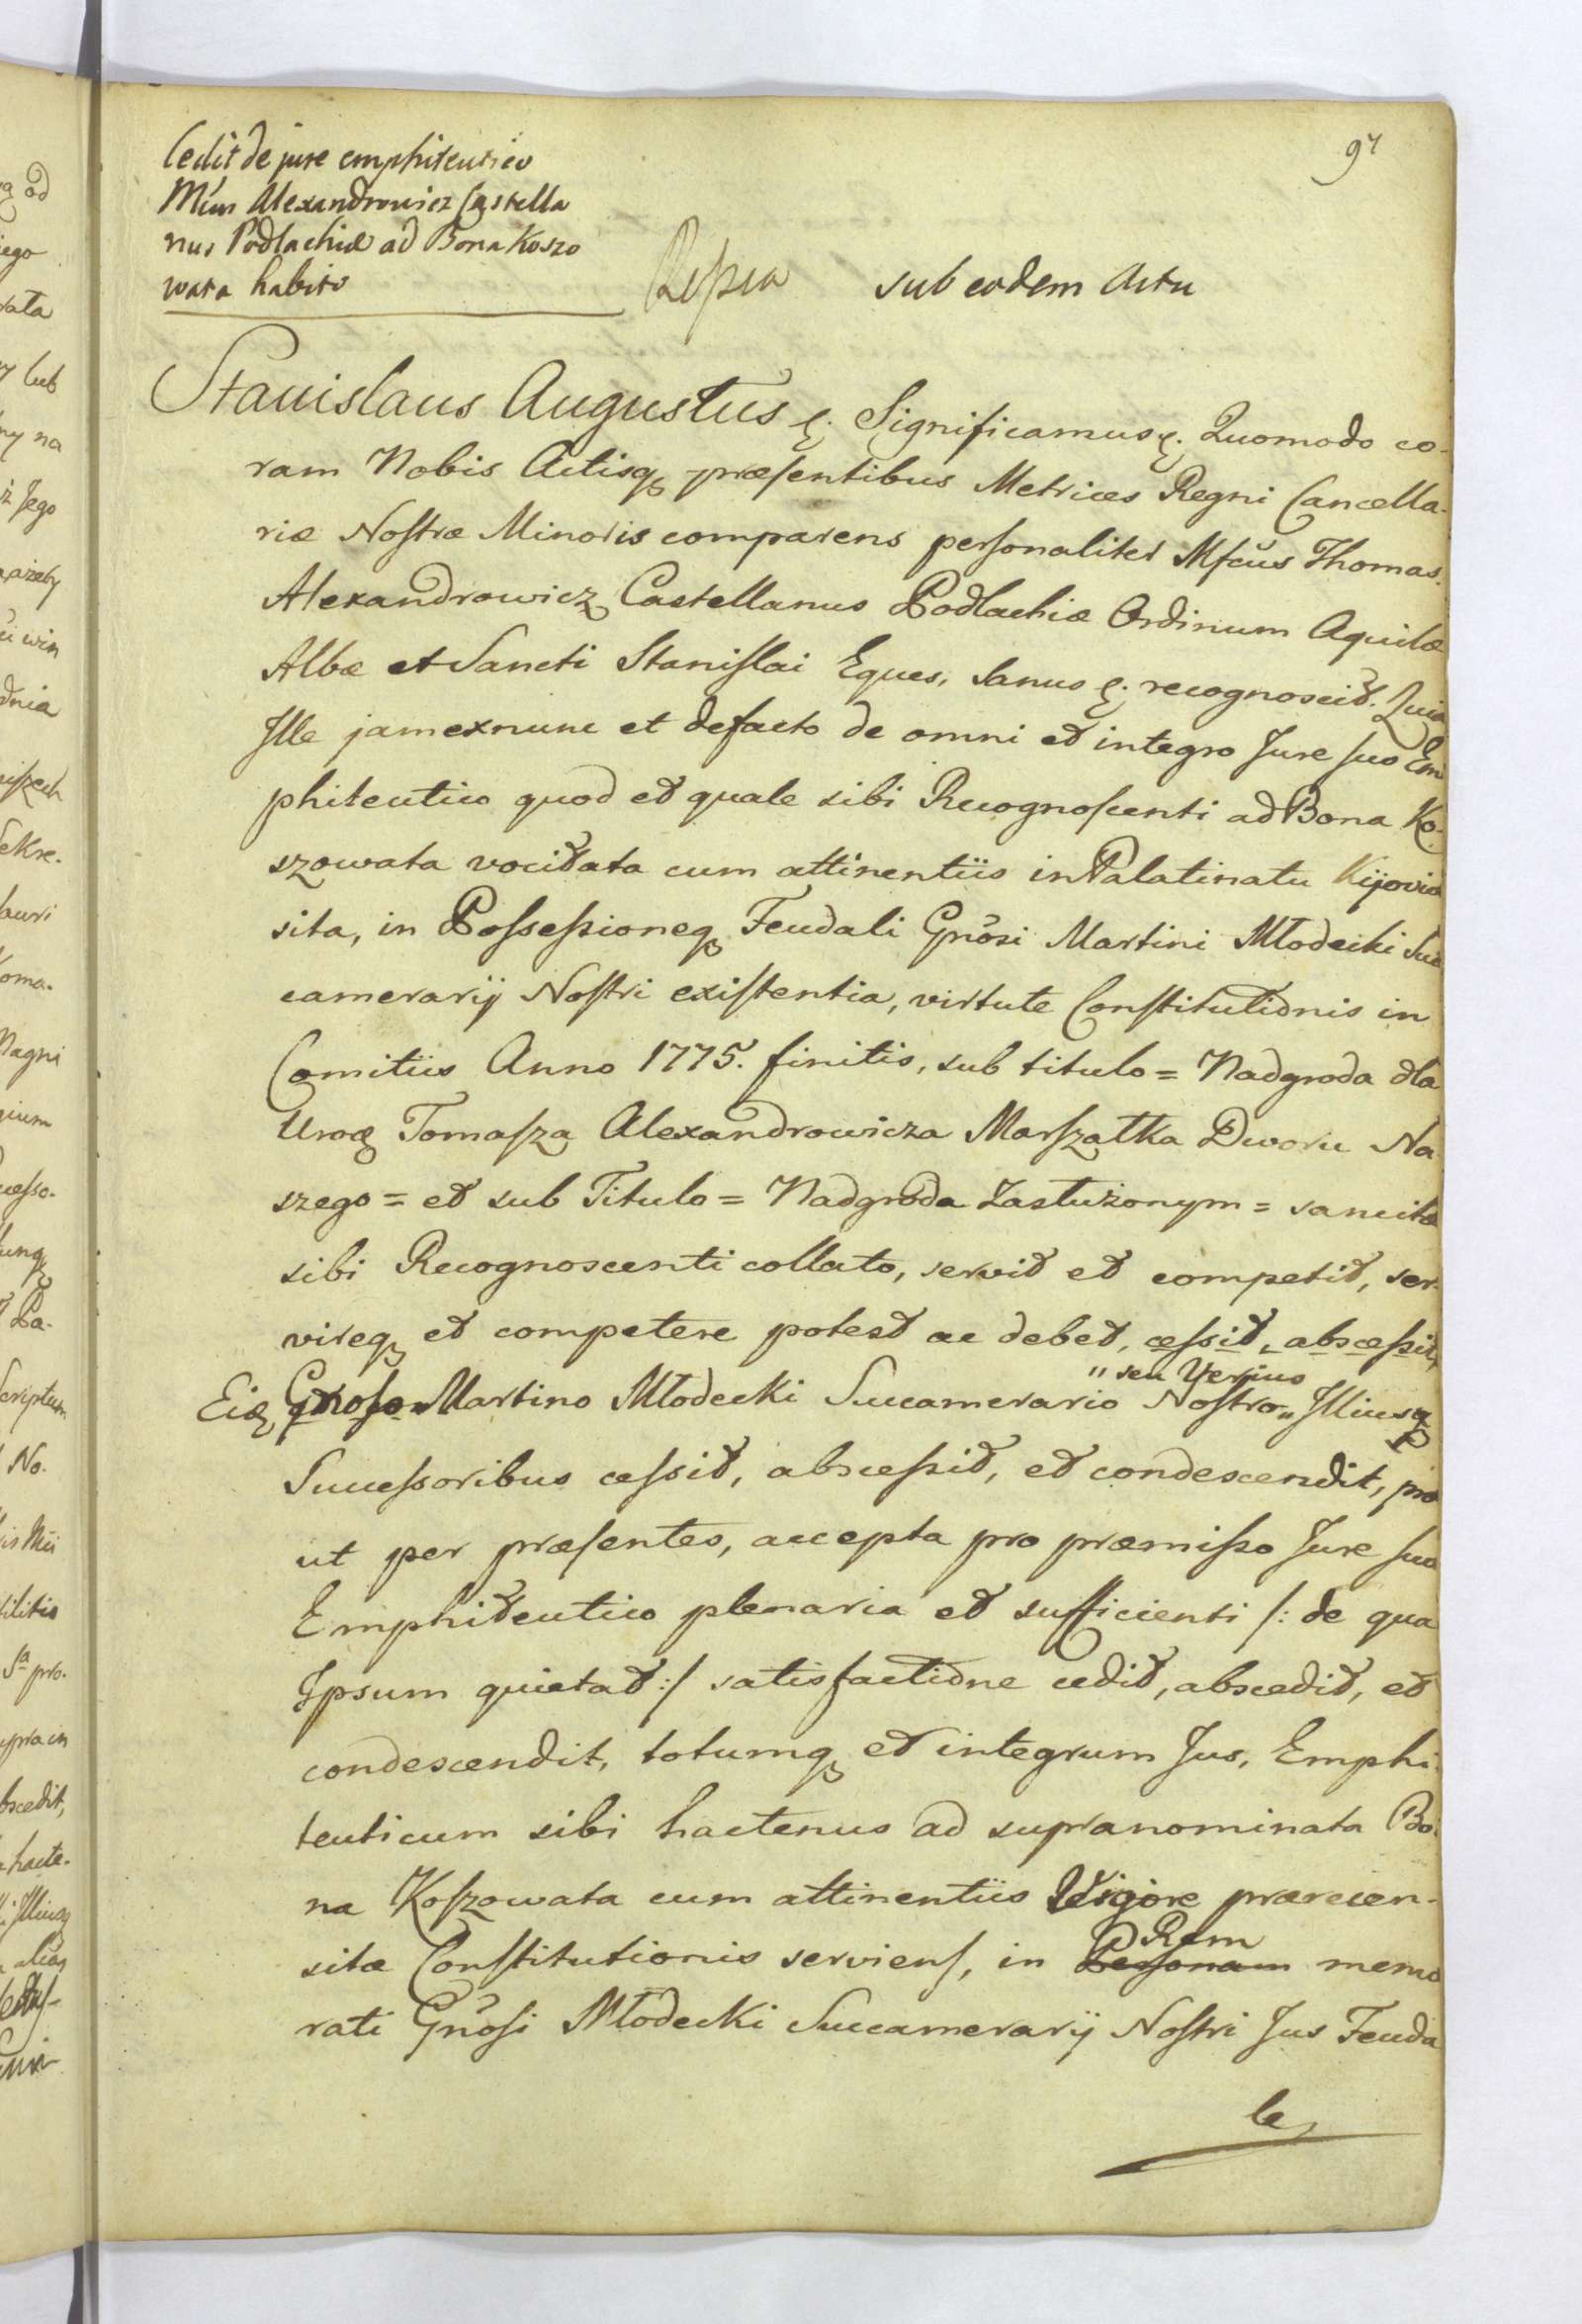 97
Cedit de jure emphiteutico
Mfcus Alexandrowicz Castella
nus Podlachiæ ad Bona Koszo
wata habito
sub eodem Actu
Stanislaus Augustus &. Significamus &. Quomodo co-
ram Nobis Actisq præsentibus Metrices Regni Cancella-
riæ Nostræ Minoris comparens personaliter Mfcus Thomas
Alexandrowicz Castellanus Podlachiæ Ordinum Aquilæ
Albæ et Sancti Stanislai Eques, Sanus &. recognoscit. Quia
Ille jam exnunc et defacto de omni et integro Jure suo Em
phiteutico quod et quale sibi Recognoscenti ad Bona Ko-
szowata vocitata cum attinentiis in Palatinatu Kijoviæ
sita, in Possessioneq Feudali Gnosi Martini Młodecki Suc
camerarij Nostri existentia, virtute Constitutionis in
Comitiis Anno 1775. finitis, sub titulo = Nadgroda dla
Urog Tomasza Alexandrowicza Marszałka Dworu Na
szego = et sub Titulo = Nadgroda Zasłużonym = sancitæ
sibi Recognoscenti collato, servit et competit, ser-
vireq et competere potest ac debet, cessit, abscessit,
" seu Verius
Eiq Gnoso Martino Młodecki Succamerario Nostro " Illiusq
Successoribus cessit, abscessit, et condescendit, pro
ut per præsentes, accepta pro præmisso Jure suo
Emphiteutico plenaria et sufficienti /: de qua
Ipsum quietat :/ satisfactione cedit, abscedit, et
condescendit, totumq et integrum Jus, Emphi
teuticum sibi hactenus ad supranominata Bo-
na Koszowata cum attinentiis Vigore prærecen-
Rem
sitæ Constitutionis serviens, in Personam memo
rati Gnosi Młodecki Succamerarij Nostri Jus Feuda
le